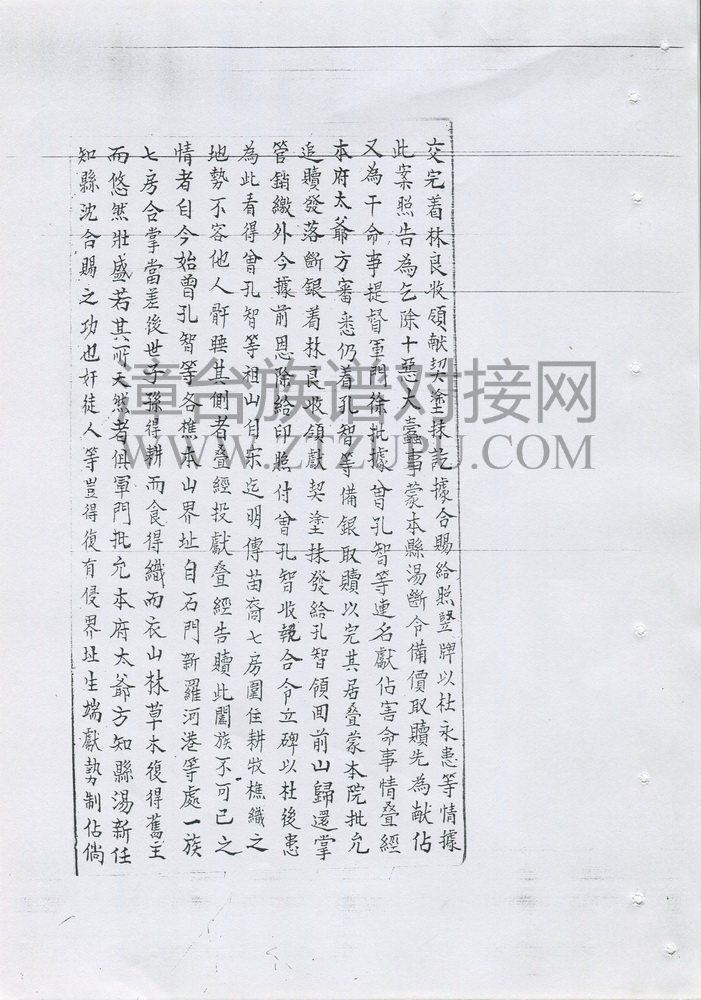 交完着林良收領献契塗抹訖據合賜給照豎牌以杜永患等情據
此案照告為乞除十惡大蠹事蒙本縣湯斷令備價取贖先為献佔
又為干命事提督軍門徐批據曾孔智等連名獻佔害命事情叠經
本府太爺方審悉仍着孔智等備銀取贖以完其居叠蒙本院批允
追贖發落斷銀着林良收領獻契塗抹發給孔智領回前山歸還掌
管銷繳外今據前恩除給印照付曾孔智收執合令立碑以杜後患
為此看得曾孔智等祖山自宋迄明傳苗裔七房圍住耕牧樵織之
地勢不容他人鼾睡其側者叠經投獻叠經告贖此闔族不可已之
情者自今始曾孔智等各樵本山界址自石門新羅河港等處一族
七房合掌當差後世子孫得耕而食得織而衣山林草木復得舊主
而悠然壯盛若其所天然者俱軍門批允本府太爺方知縣湯新任
知縣沈合賜之功也奸徒人等豈得復有侵界址生端獻勢制佔倘
漳台族谱对接网
WWW.ZTZUPU.COM